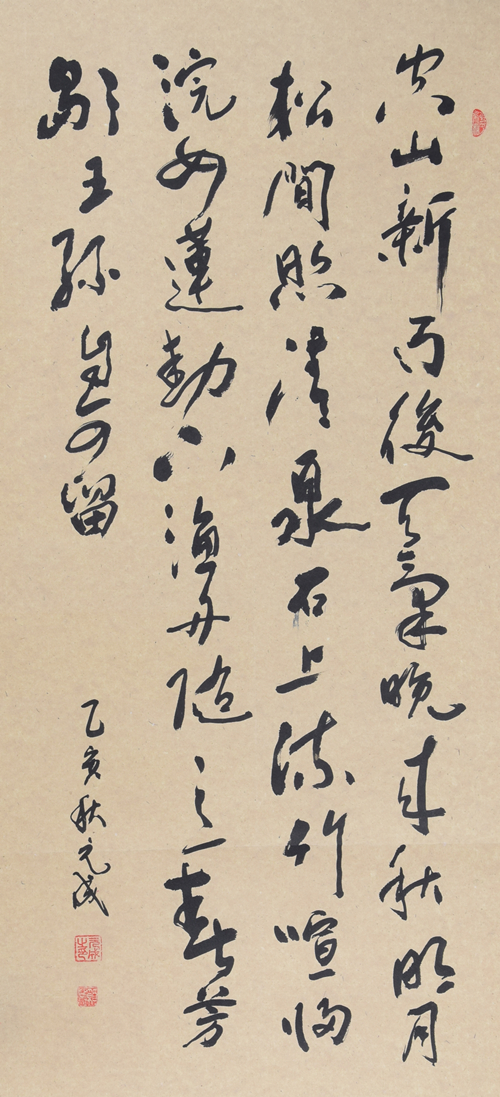 空山新雨後天氣晚來秋明月
松間照清泉石上流竹喧歸
浣女蓮動下漁舟隨意春芳
歇王孫自可留
乙亥秋元成